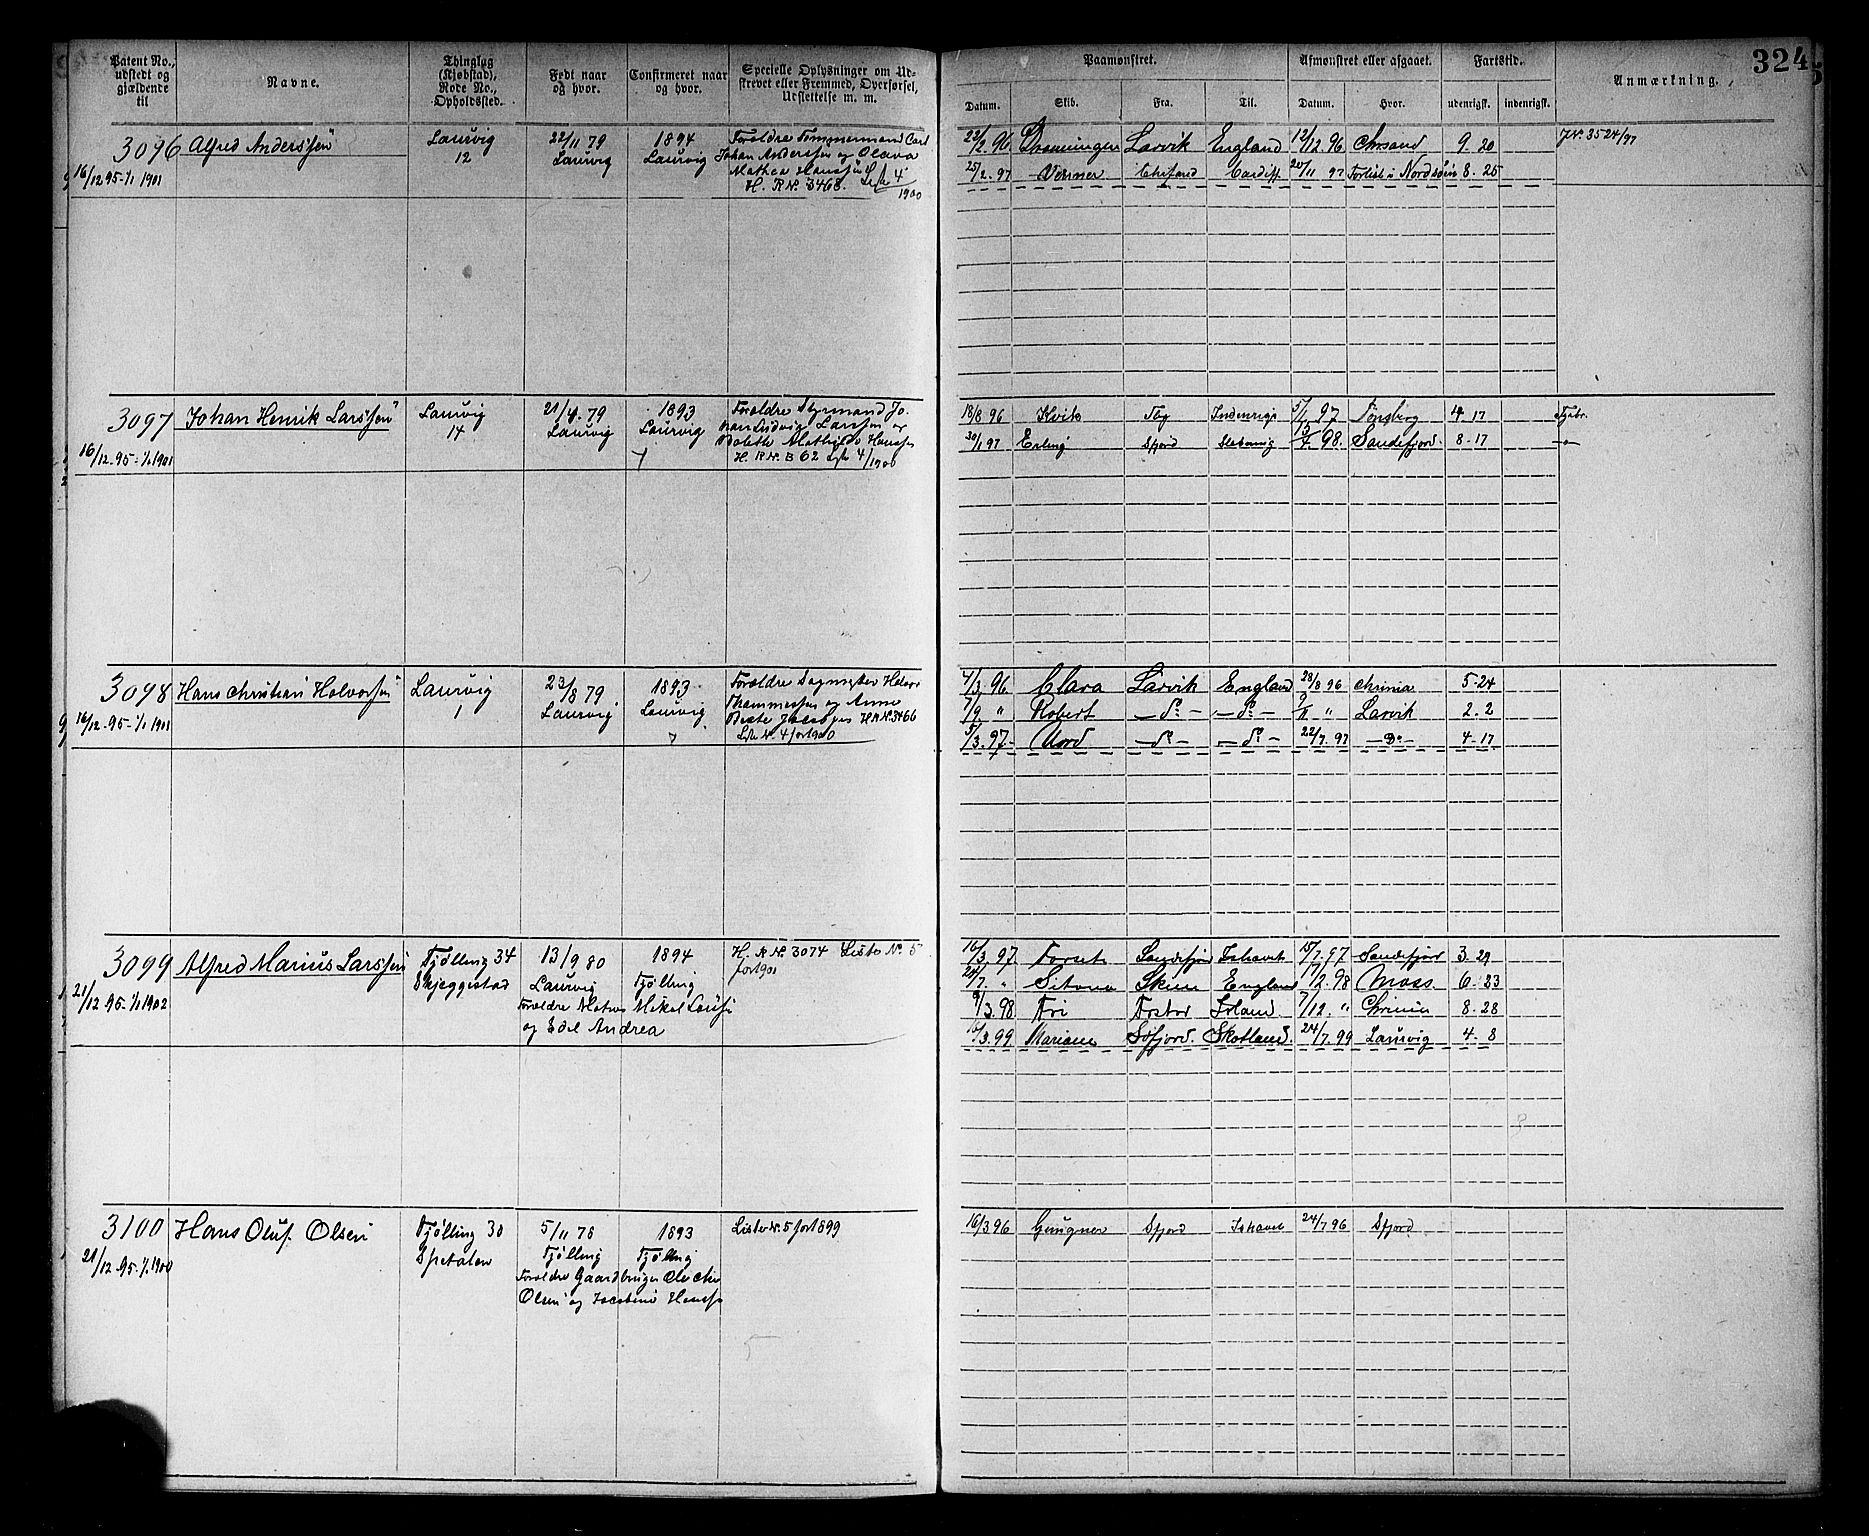 324
Patent No., udstedt og gjældende til
Navne.
Thinglag (Kjøbstad), Rode No., Opholdssted.
Født naar og hvor.
Confirmeret naar og hvor.
Specielle Oplysninger om Udskrevet eller Fremmed, Overførsel, Udslettelse m. m.
Paamønstret.
Afmønstret eller afgaaet.
Fartstid.
Anmærkning.
Datum.
Skib.
Fra.
Til.
Datum.
Hvor.
udenrigsk.
indenrigsk.
3096 Alfred Anderssen
16/12 95 - 1/1 1901
Laurvig
12
22/11 79
Laurvig
1894
Laurvig
Forældre Tømmermand Carl
Johan Anderssen og Olava
Mathea Hanssen
H. R No. 3468. Lste 4
1900
22/2. 96 Dronningen Larvik England 12/12. 96 Chrsand 9. 20
J No. 3524/97
25/2. 97 Verner Chrsand Cardiff 20/11 97 Forlist i Nordsøen 8. 25
3097 Johan Henrik Larssen
16/12. 95 - 1/1 1901
Laurvig
14
79
Laurvig
1893
Laurvig
Forældre Styrmand Jo-
han Ludvig Larssen og
Bolette Mathilde Hanssen
H. R No. B 62 Lste 4/1900
18/8 96 Tbg Indenrigs 5/1 97 Tønsberg 4 17
30/1 97 Erling Sfjord 98. Sandefjord 8 - 17
3098 Hans Christian Halvorsen
16/12. 95 - 1/1 1901
Laurvig
1
23/8 79
Laurvig
1893
Laurvig
Forældre
Thommessen og Anne
H R No. 3466
Lste No. 4 for 1900
7/3. 96 Clara Larvik England 28/8 96 Chrinia 5 - 24
7/9 " Robert - do - - do - " Larvik 2. 2
5/3. 97 - Nord - do - - do - 22/7. 97 - Do - 4 - 17
3099 Alfred Marius Larssen
21/12. 95 - 1/1 1902
Tjølling 34
Skjeggestad
13/9 80
Laurvig
1894
Tjølling
Forældre Matros Mikal Larssen
og Edel Andrea
H. R No. 3074 Liste No. 5
for 1901
16/3. 97. Forset Sandefjord Ishavet 15/7. 97 Sandefjord 3. 29
24/7. " Skien England 17/2. 98 Moss 6. 23
9/3. 98 Irland 7/12. " Chrinia 8. 28
16/3. 99 Sdfjord. Skotland. 24/7. 99 Laurvig 4 - 8
3100 Hans Oluf Olsen
21/12. 95 - 1/1 1900
Tjølling 30
Spetalen
5/11 78
Tjølling
1893
Tjølling
Forældre Gaardbruger
Olsen og Jacobine Hanssen
Liste No. 5 for 1899
16/3 96 Gungner Sfjord Ishavet 24/7 96 Sfjord